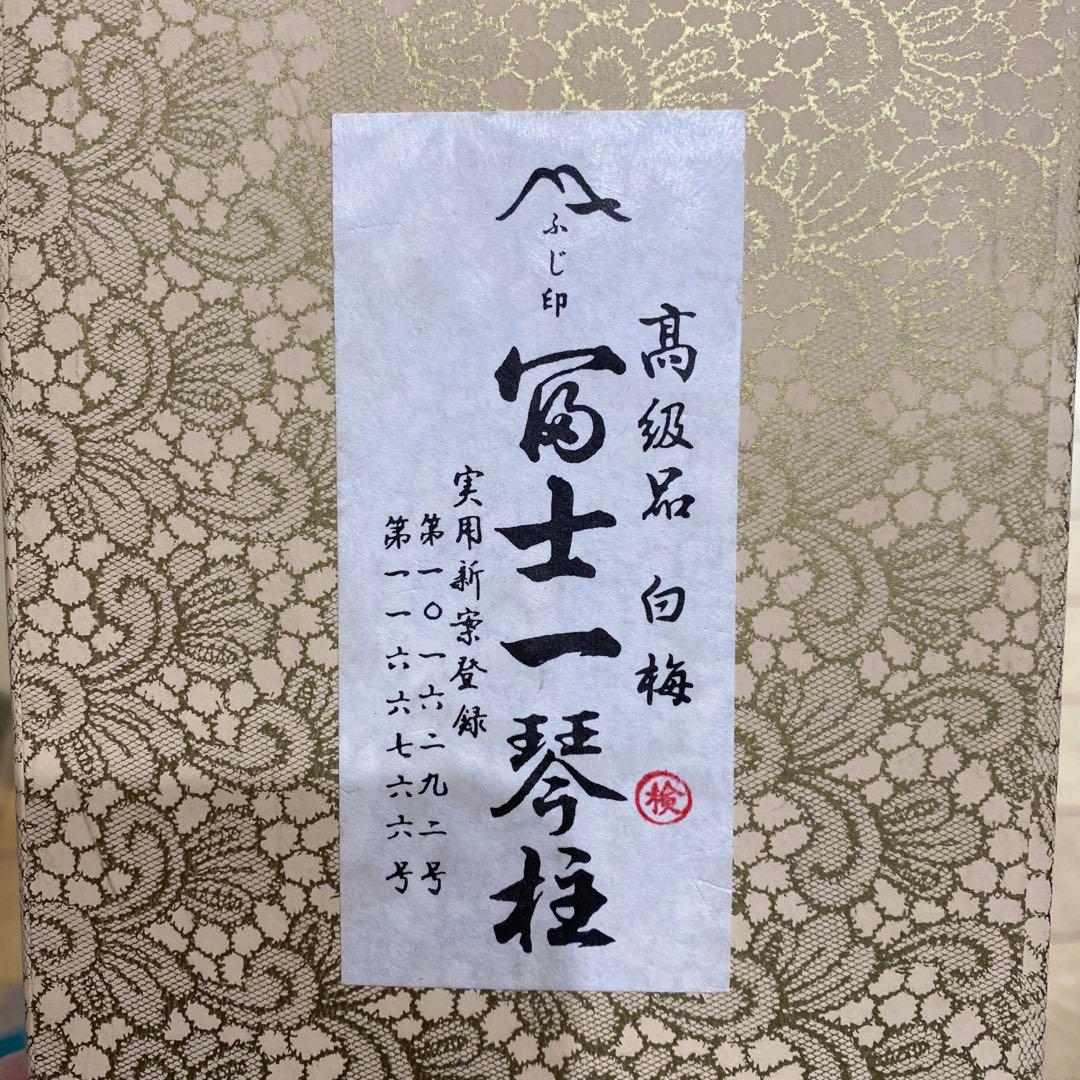 ふじ印
髙級品 白梅
冨士一琴柱
実用新案登録
第一〇一六二九二号
第一一六六七六六号
検